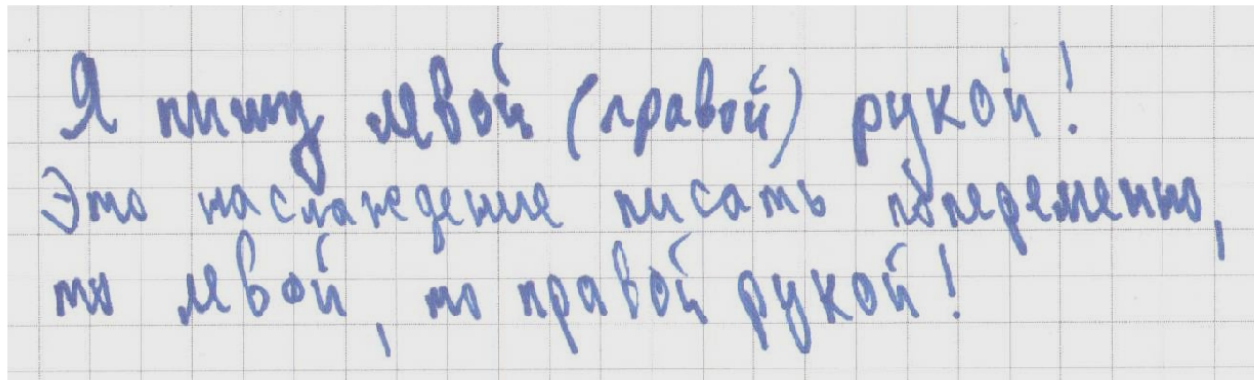 Я пишу левой (правой) рукой!
Это наслаждение писать попеременно,
то левой, то правой рукой!